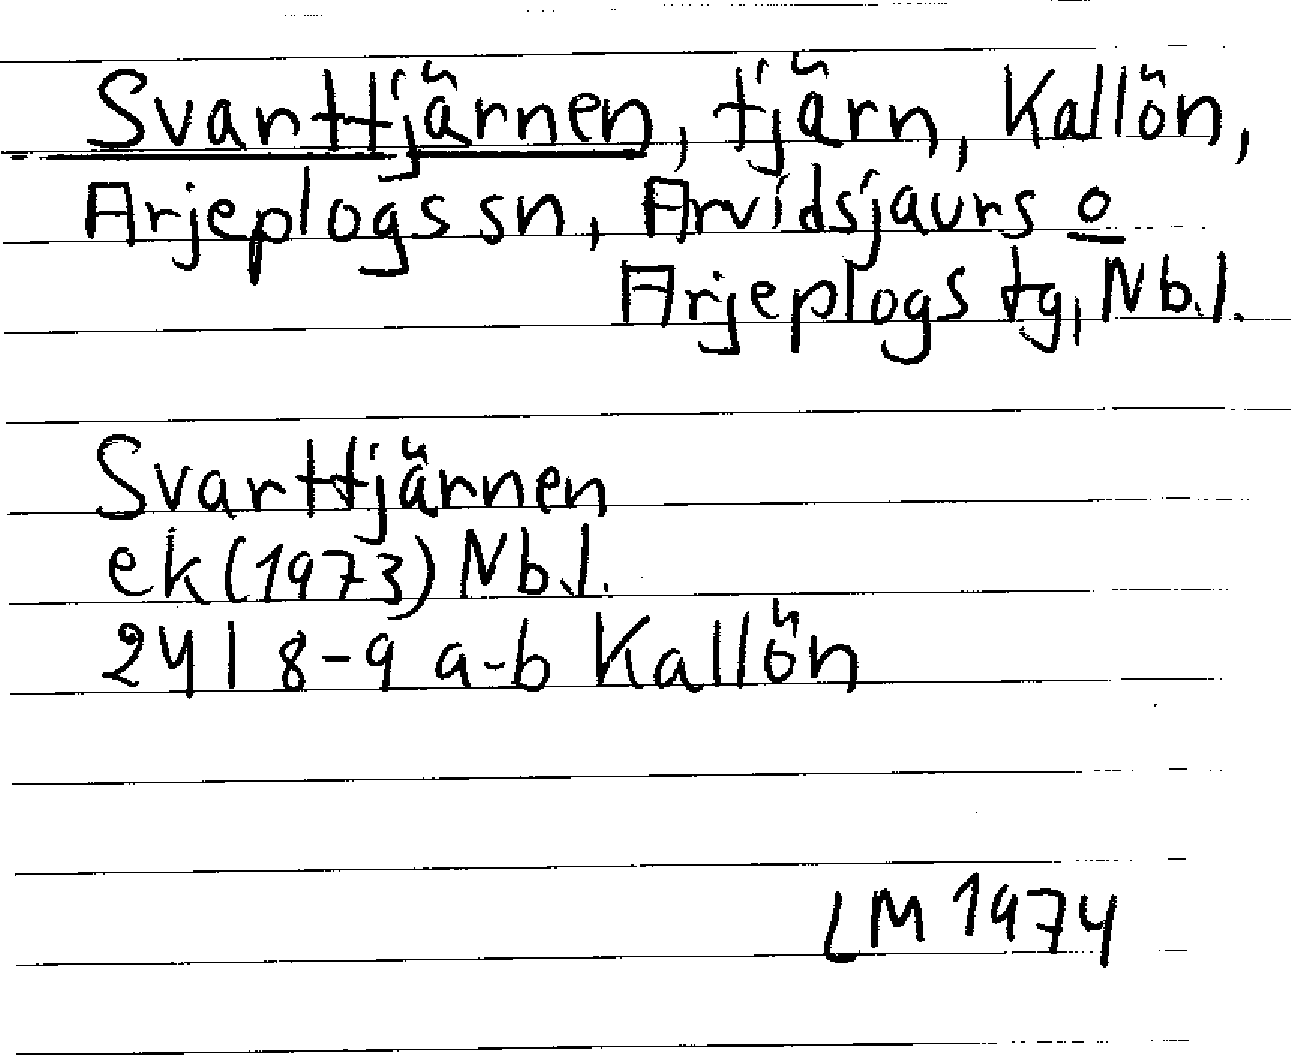 Svarttjärnen, tjärn, Kallön,
Arjeplogs sn, Arvidsjaurs o
Arjeplogs tg, Nb.l.
Svarttjärnen
ek (1973) Nb.l.
24I 8-9 a-b Kallön
LM 1974